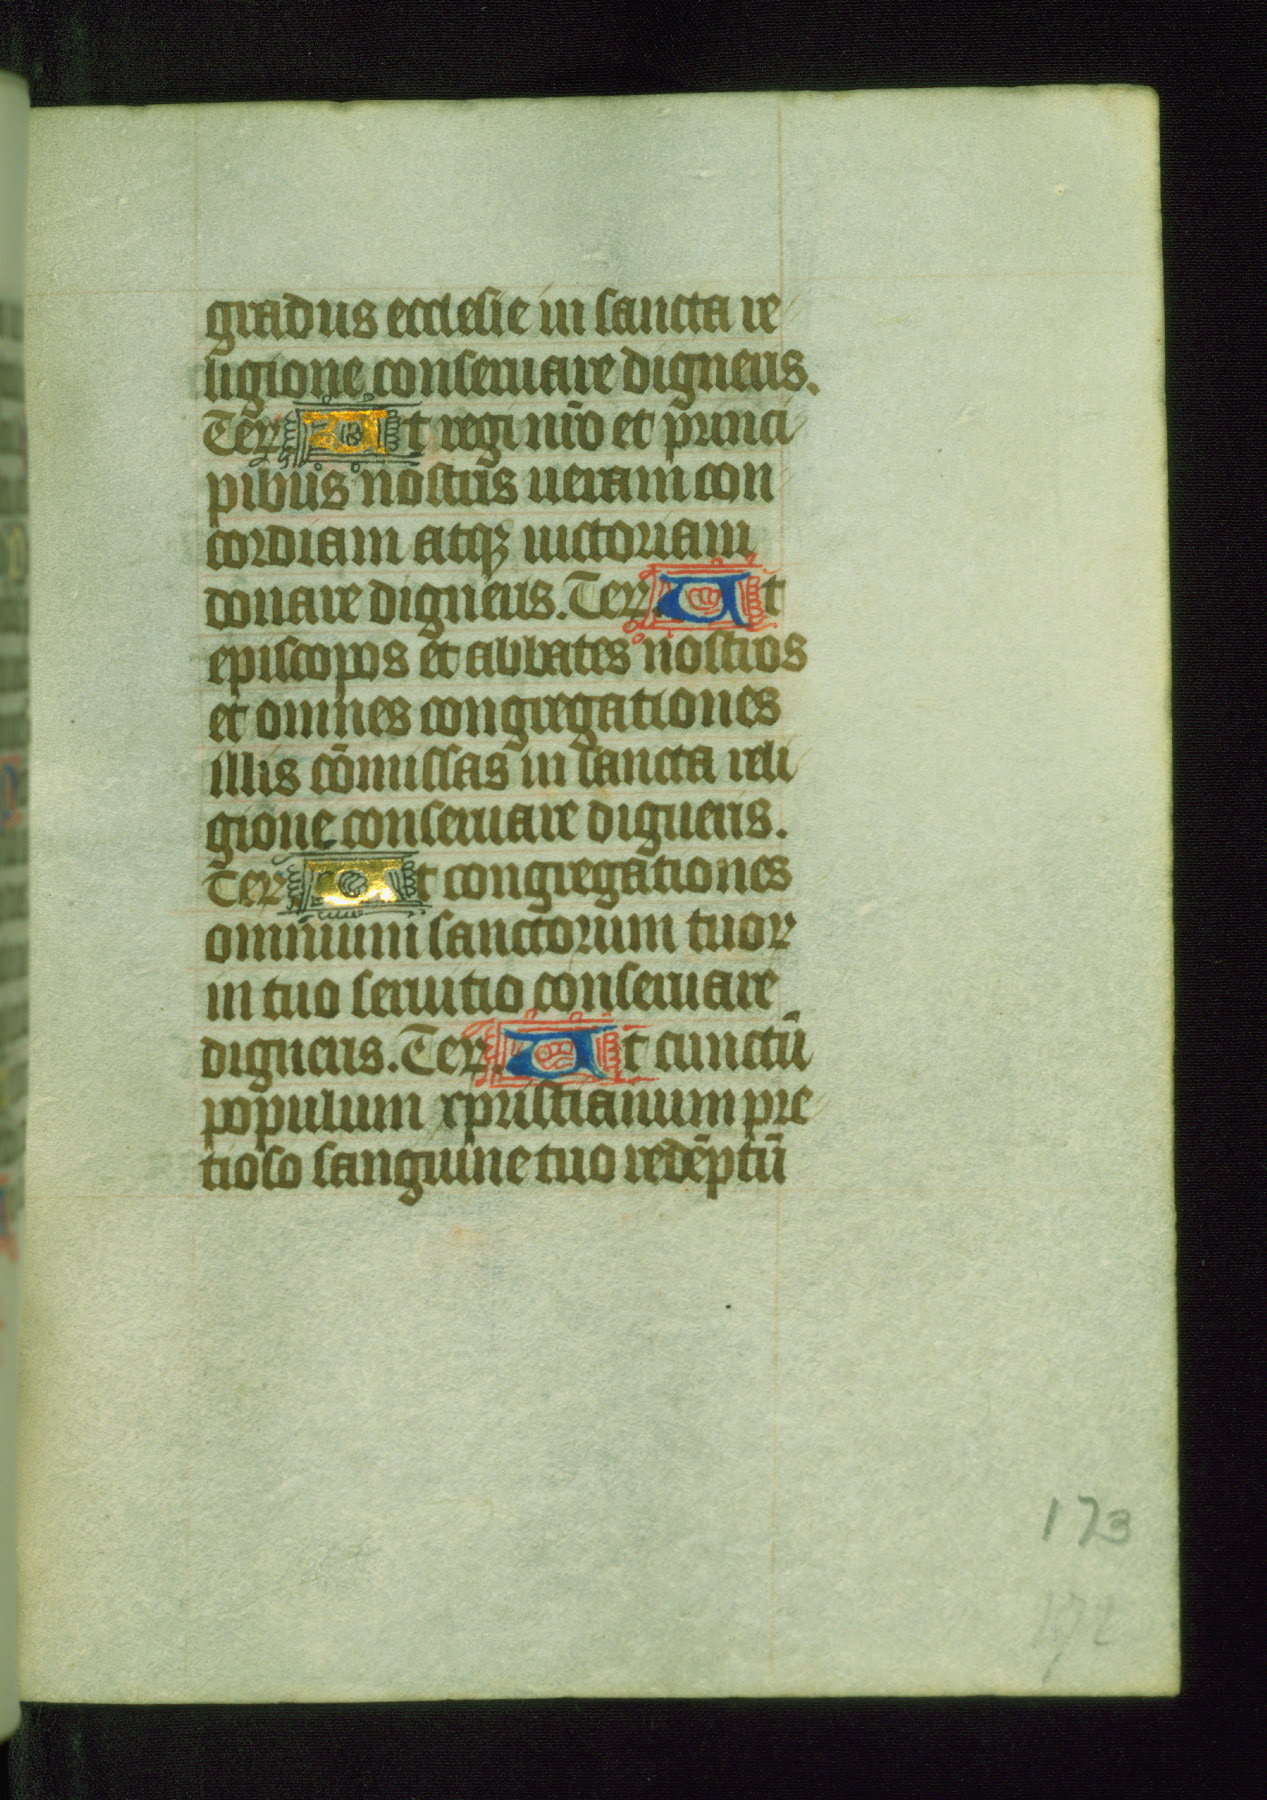 gradus ecclesie in sancta re
ligione conseruare digneris.
Ter. Ut regi nr̄o et princi
pibus nostris ueram con
cordiam atqꝫ uictoriam
donare digneris. Ter. Ut
episcopos et abbates nostros
et omnes congregationes
illis cōmissas in sancta reli
gione conseruare digneris.
Ter. Ut congregationes
omnium sanctorum tuoꝝ
in tuo seruitio conseruare
digneris. Ter. Ut cunctū
populum xpristianum pre
tioso sanguine tuo redēptū
173
172